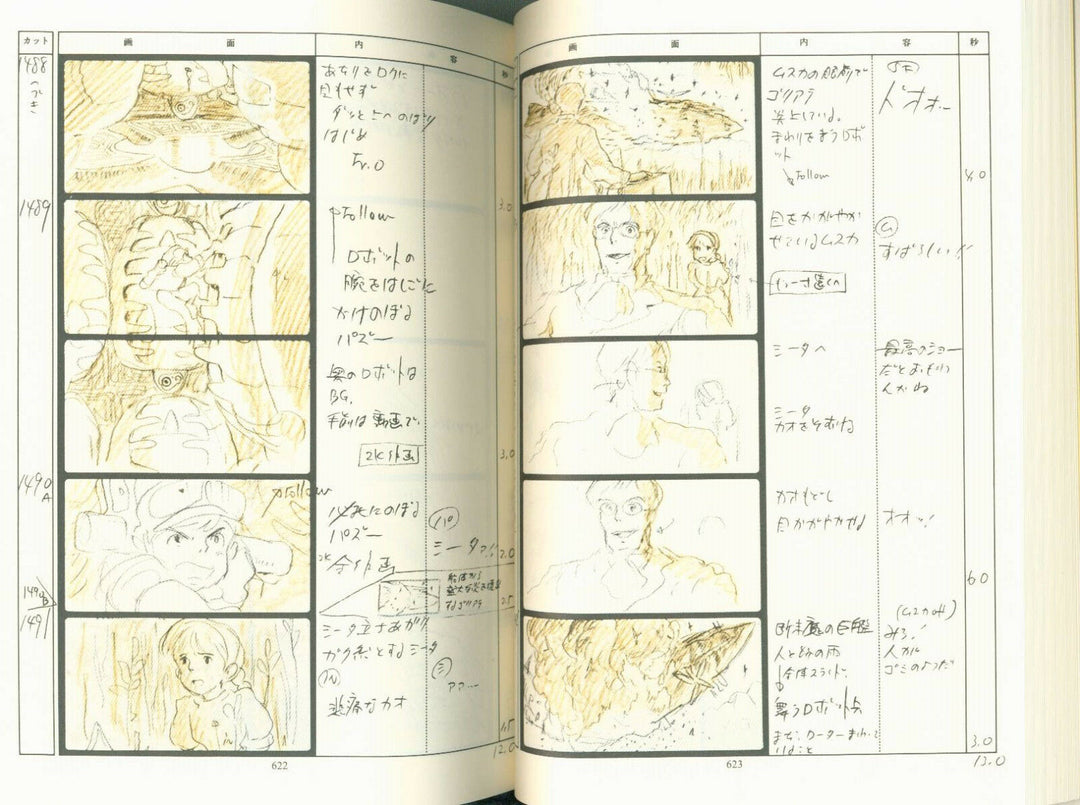 カット 画 面 内 容 秒
1488
つづき
目もせず
ダッと上へのぼり
はじめ
3.0
1489
Follow
ロボットの
腕をはしごに
かけのぼる
パズー
奥のロボットは
BG.
手前は動画で.
2K分画
3.0
1490
A
Follow
にのぼる
パズー
パ
シータっ!!
2.0
2.5
1491
シータ立ちあがり
ガク然とするシータ
悲痛なカオ
アア…
1.5
12.0
622
画 面 内 容 秒
ムスカの眼前で
ゴリアテ
炎上している。
まわりをまうロボ
ット
Follow
SE
ドオオー
4.0
目をかがやか
せているムスカ
ム
すばらしい!!
シータへ
最高のショー
だとおもわ
んかね
シータ
カオをそむける
カオもどし
目かがやかせる
オオッ!
6.0
断末魔の巨艦
人とゴミの雨
全体スライド
舞うロボット点
まだローターまわって
いること
(ムスカのみ)
みろ!
人が
ゴミのようだ
3.0
13.0
623